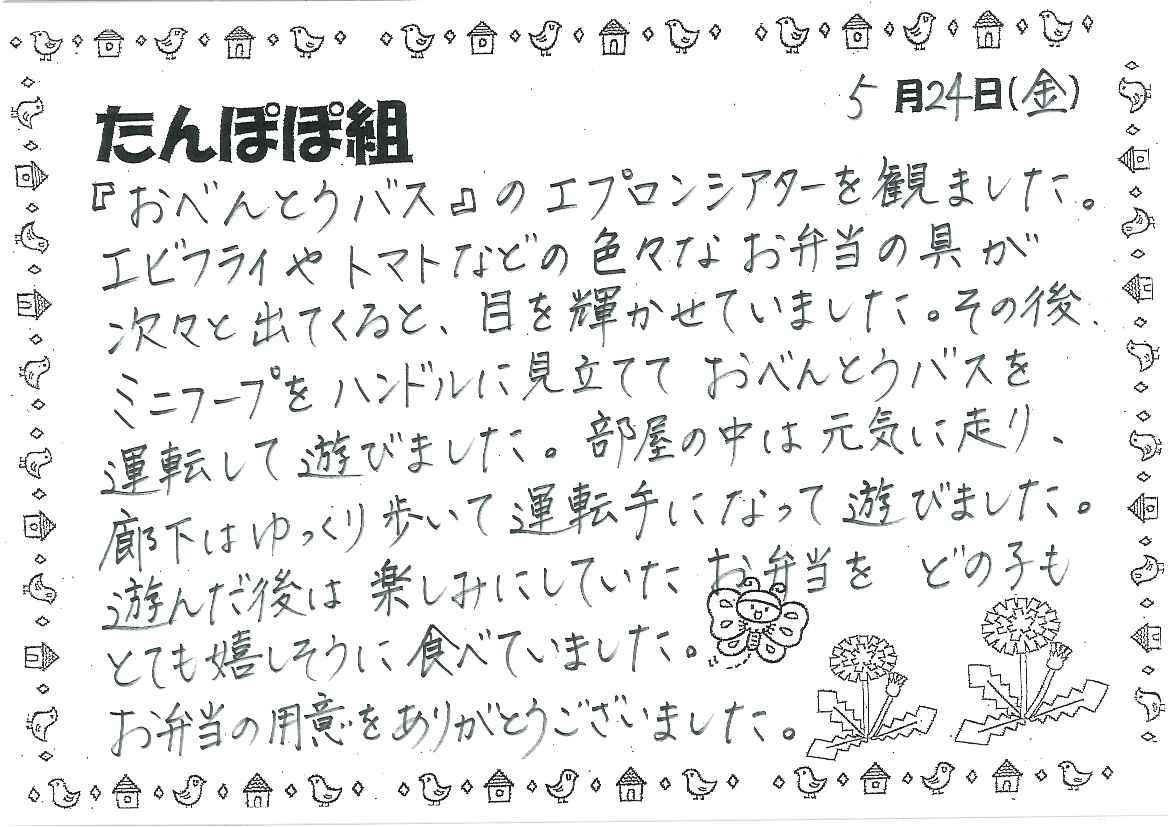 5月24日(金)
たんぽぽ組
『おべんとうバス』のエプロンシアターを観ました。
エビフライやトマトなどの色々なお弁当の具が
次々と出てくると、目を輝かせていました。その後、
ミニフープをハンドルに見立てておべんとうバスを
運転して遊びました。部屋の中は元気に走り、
廊下はゆっくり歩いて運転手になって遊びました。
遊んだ後は楽しみにしていたお弁当をどの子も
とても嬉しそうに食べていました。
お弁当の用意をありがとうございました。